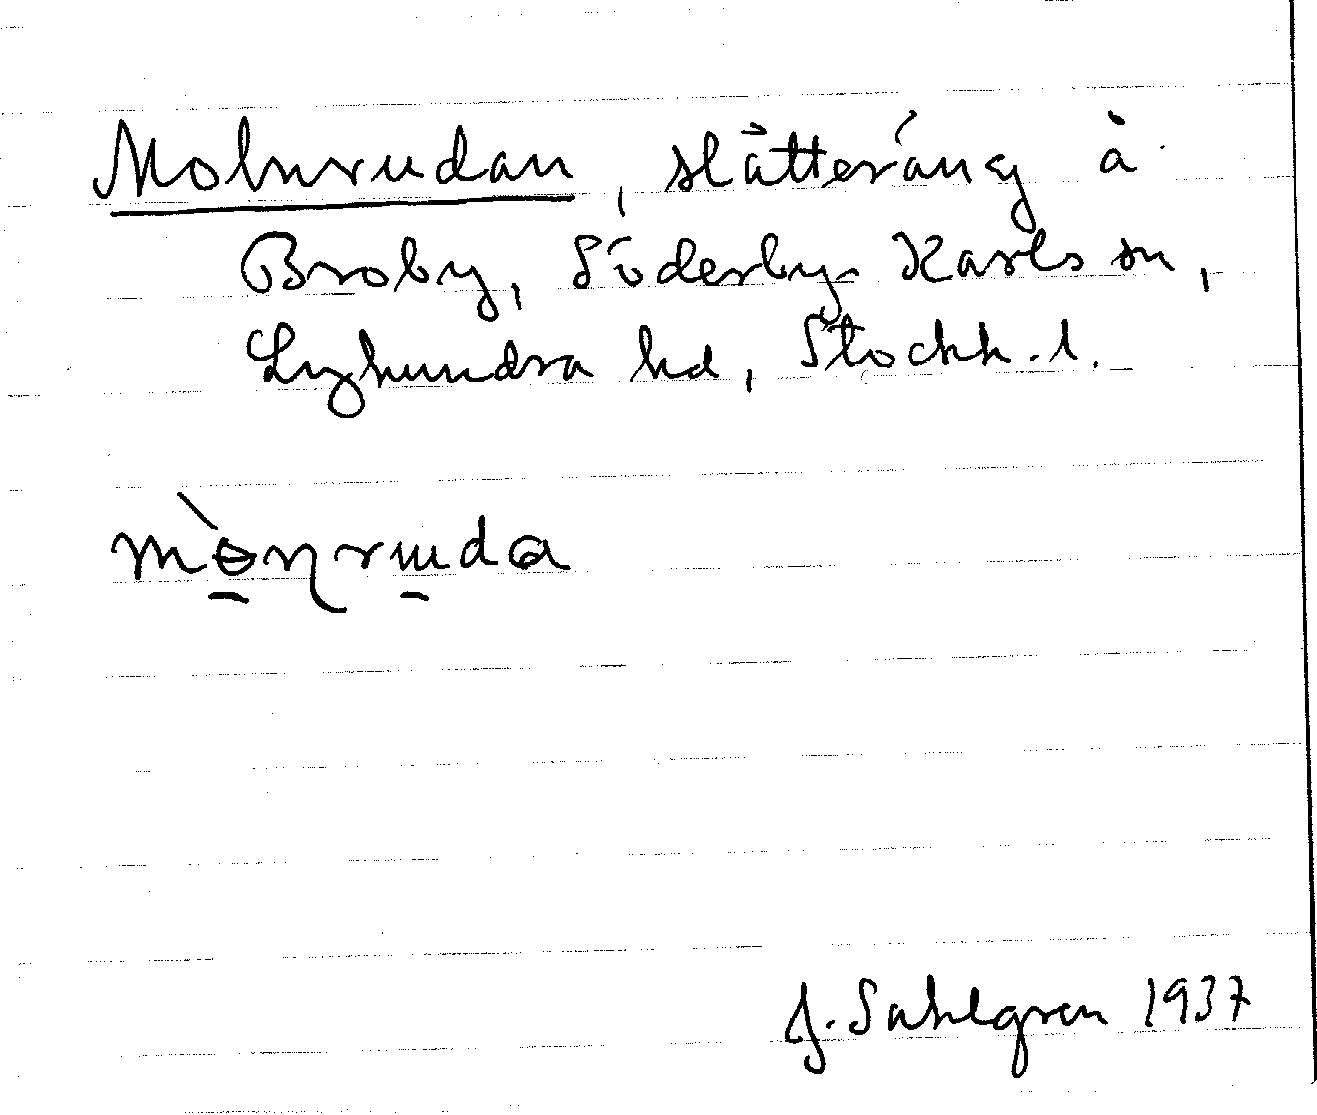 Molnrudan, slätteräng å
Broby, Söderby-Karls sn,
Lyhundra hd, Stockh. l.
mɵ̠̀ɳru̠da
J. Sahlgren 1937